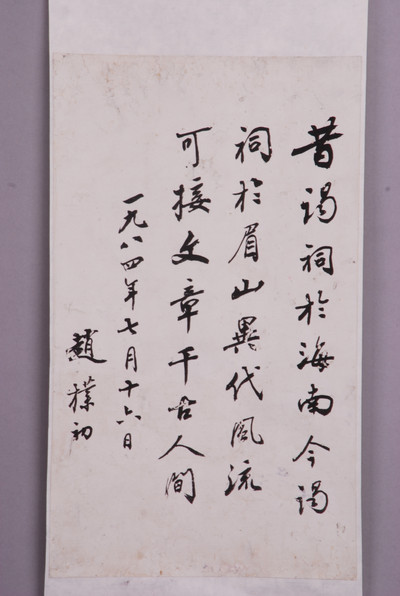 昔謁祠於海南今謁
祠於眉山異代風流
可接文章千古人間
一九八四年七月十六日
趙樸初